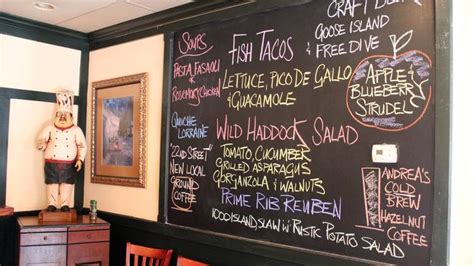 SOUPS
PASTA FASAOLI
&
ROSEMARY CHICKEN
QUICHE
LORRAINE
"22ND STREET"
NEW LOCAL
GROUND
COFFEE
FISH TACOS
LETTUCE, PICO DE GALLO
& GUACAMOLE
WILD HADDOCK SALAD
TOMATO, CUCUMBER
GRILLED ASPARAGUS
GORGANZOLA & WALNUTS
PRIME RIB REUBEN
1000 ISLAND SLAW W/ RUSTIC POTATO SALAD
CRAFT BEER
GOOSE ISLAND
& FREE DIVE
APPLE &
BLUEBERRY
STRUDEL
ANDREA'S
COLD
BREW
HAZELNUT
COFFEE